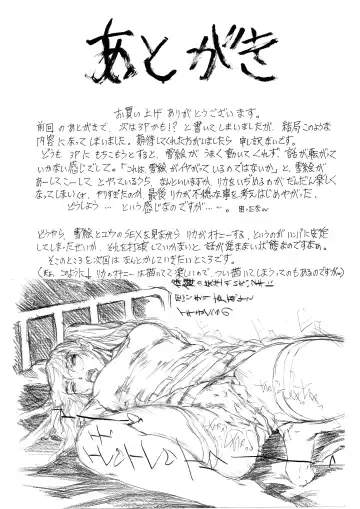 あとがき
お買い上げ ありがとうございます。
前回のあとがきで、次は3Pかも!?と書いてしまいましたが、結局このような
内容になってしまいました。期待してくれた方がいましたら申し訳ないです。
どうも3Pにもちこもうとすると、雪絵がうまく動いてくれず、話が転がって
いかない感じでして。「これは雪絵がイヤがっているのではないか」と、雪絵を
あーしてこーしてとやっているうち、なんといいますか、リカをいぢめるのがだんだん楽しく
なってしまい、やりすぎたのか最後リカが不穏な事を考えはじめやがった、
どうしよう… という感じなのですが…。
どうやら、雪絵とユウのSEXを見ながらリカがオナニーする、というのがハンパに安定
してしまったせいか、それを打破していかないと、話が進まない状態なのですよ。
そこのところを次回はなんとかしていきたいところです。
(まぁ、このように↓リカのオナニーは描いてて楽しいので、つい描いてしまうってのもあるのですが。)